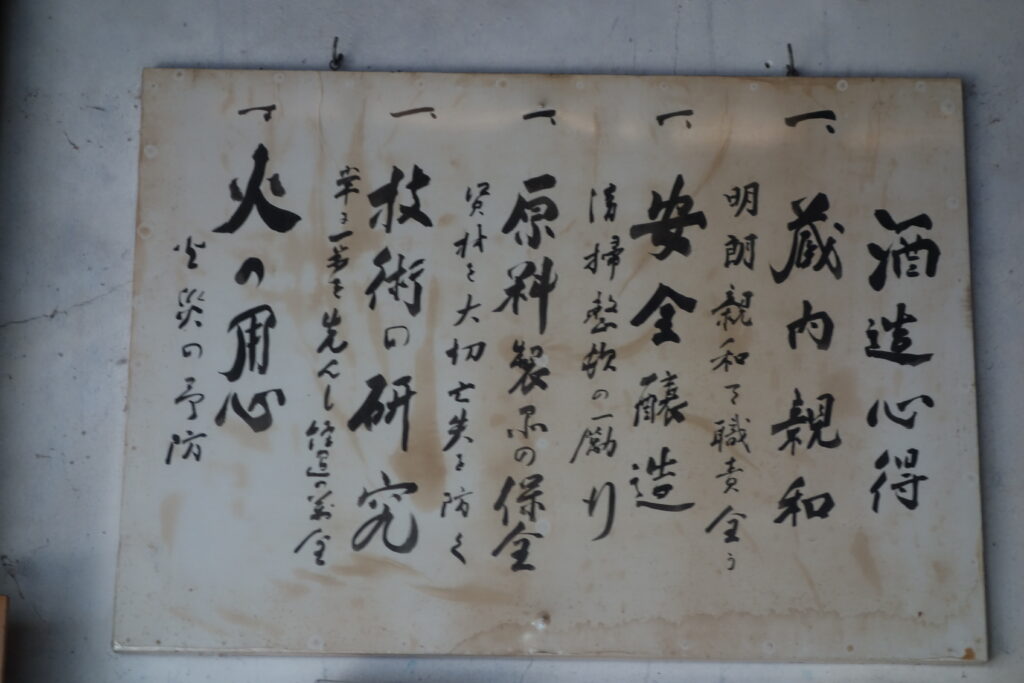 酒造心得
一、蔵内親和
明朗親和で職責全う
一、安全醸造
清掃整頓の励行
一、原料製品の保全
資材を大切亡失を防く
一、技術の研究
常に一歩を先んし の萬全
一、火の用心
火災の予防